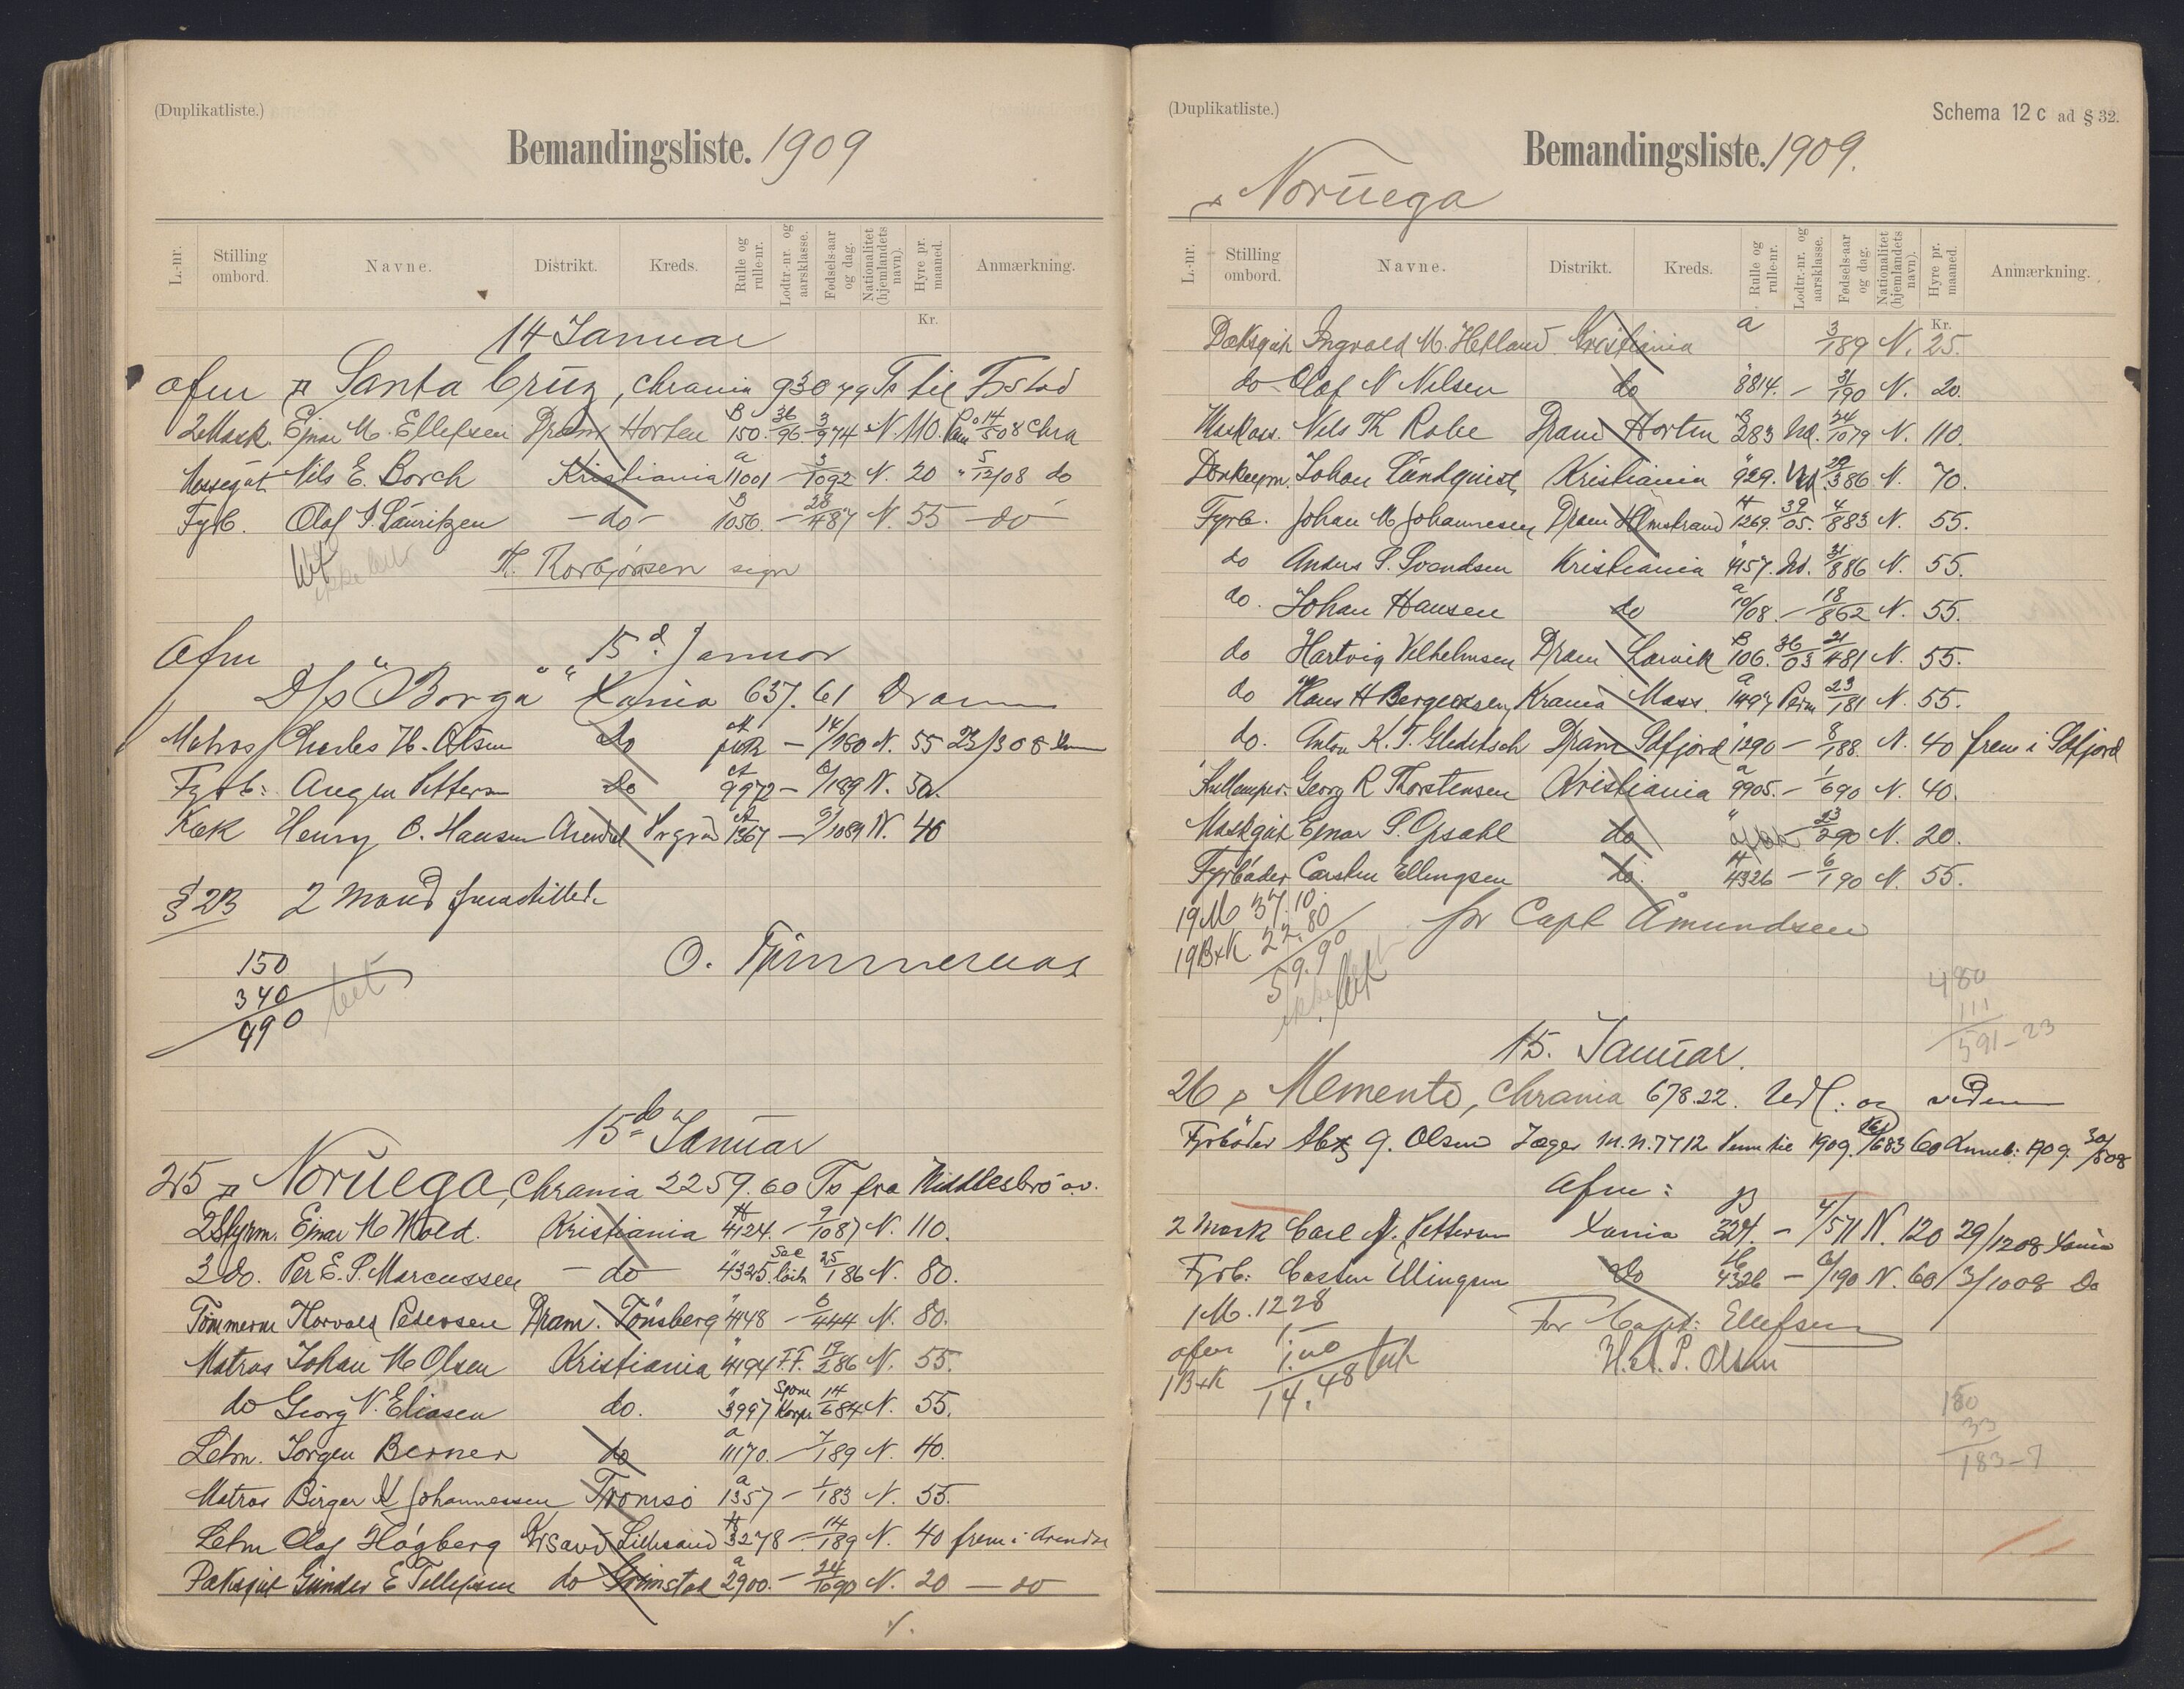 (Duplikatliste.)
Bemandingsliste. 1909
L.-nr. Stilling ombord. Navne. Distrikt. Kreds. Rulle og rulle-nr. Lodtr.-nr. og aarsklasse. Fødsels-aar og dag. Nationalitet (hjemlandets navn). Hyre pr. maaned. Anmærkning.
Kr.
14 Januar
afm Santa Cruz, Chrania 930.79 To til Fstad
2 Mask. Ejnar M. Ellefsen Dram Horten B 150. 36/96 3/974 N. 110. 14/508 Chra
Messegut Nils E. Borch Kristiania a 11001 - 3/1092 N. 20 " 5/12/08 do
Fyrb. Olaf I. Lauritzen - do - B 1056. - 28/487 N. 55 - do
Th. Torbjörnsen sign
Afm 15d. Januar
D/s "Borga" Xania 637.61 Dram
Matros Charles H. Olsen do - 14/180 N. 55 23/308
Fyrb: Petterson do A 9972 - 6/189 N. 50.
Kok Henry O. Hansen Arendal A 1367 - 9/1089 N. 40
§ 2B 2 Mand
150
340
490
O.
15de Januar
25 Noruega, Chrania 2259.60 To fra Middlesbro o.v.
2 Styrm. Ejnar M Wold. Kristiania H 4124. - 9/1087 N. 110.
3 do. Per E. P. Marcussen - do " 4325. 25/186 N. 80.
Tömmerm Thorvald Pedersen Dram. Tönsberg " 4148 - 6/444 N. 80.
Matros Johan M Olsen Kristiania " 4194 F.F. 17/286 N. 55.
do Georg N. Eliasen do. " 3997 14/684 N. 55.
Letm. Jorgen Berner do a 11170. - 7/189 N. 40.
Matros Birger K Johannessen Tromsö a 1357 - 1/183 N. 55.
Letm Olaf Högberg Krsand Lillesand H 3278 - 14/189 N. 40 frem i Arendal
Dæksgut Gunder E Tellefsen do Grimstad a 2900. - 24/1090 N. 20 - do
./.
(Duplikatliste.) Schema 12 c ad § 32.
Bemandingsliste. 1909.
Noruega
L.-nr. Stilling ombord. Navne. Distrikt. Kreds. Rulle og rulle-nr. Lodtr.-nr. og aarsklasse. Fødsels-aar og dag. Nationalitet (hjemlandets navn). Hyre pr. maaned. Anmærkning.
Kr.
Dæksgut Ingvald M. Helland Kristiania a 3/189 N. 25.
do Olaf N Nilsen do " 8814. - 31/190 N. 20.
Mask ass. Nils Th Robe Dram Horten B 283 24/1079 N. 110.
Donkeym. Johan Lundquist Kristiania " 929. 29/386 N. 70.
Fyrb. Johan M Johannesen Dram Holmstrand H 1269. 39/05. 4/883 N. 55.
do Anders S. Svendsen Kristiania " 4157. 31/886 N. 55.
do. Johan Hansen do a 10/08. - 18/862 N. 55.
do Hartvig Vilhelmsen Dram Larvik B 106. 36/03 21/481 N. 55.
do Hans H Bergersen Krania Moss. a 1497 Perm 23/181 N. 55.
do. Anton K. T. Gleditsch Dram Sdfjord " 1290 - 8/188. N. 40 frem i Sdfjord
Kullemper. Georg R Thorstensen Kristiania a 9905. - 1/690 N. 40.
Maskgut Ejnar S. Opsahl do " 23/290 N. 20.
Fyrböder Carsten Ellingsen do. H 4326 - 6/190 N. 55.
19 M 37.10
19 B+K 22.80
59.90
for Capt Åmundsen
480
111
591-23
15. Januar.
26 Memento, Chrania 678.22. Udl: og videre
Fyrböder G. Olsen Jæger M. N. 7712 1909. 16/683 60 1909. 30/808
Afm:
2 Mask Carl A. Petterson Xania B 324. - 4/571 N. 120 29/1208 Xania
Fyrb: Casten Ellingsen do H 4326 - 6/190 N. 60 3/1008 do
1 M. 12.28
afm 1.-
1 B+K 1.20
14.48
For Capt: Ellefsen
H. A. P. Olsen
150
33
183-7